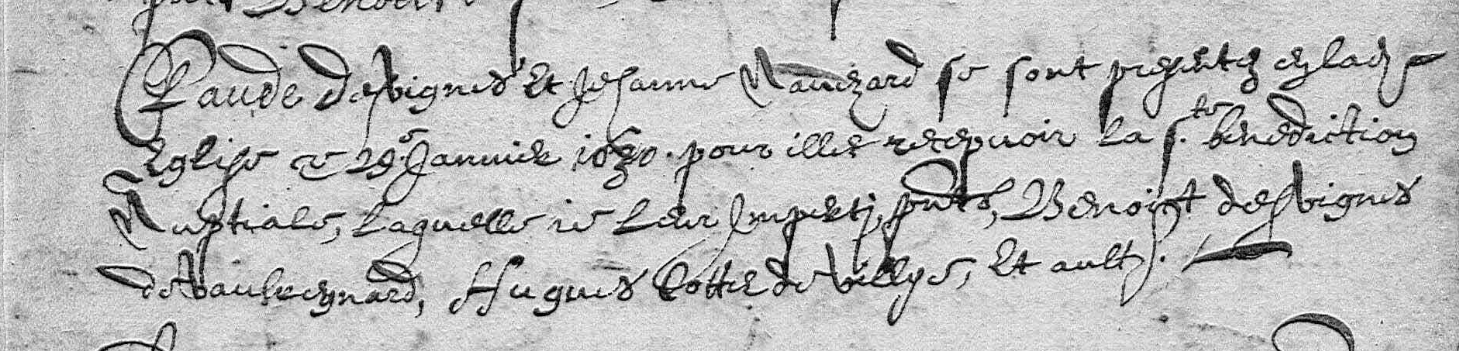 Claude Desvignes Et Jehanne Nanizard se sont presentez en lad
Eglise ce 29e Janvier 1630. pour illec recepvoir la s.te benediction
Nuptiale, laquelle ie leur Imparti, pnts, Benoist desvignes
de Vaulxregnard, Hugues Cottel de Villye, Et aultz.